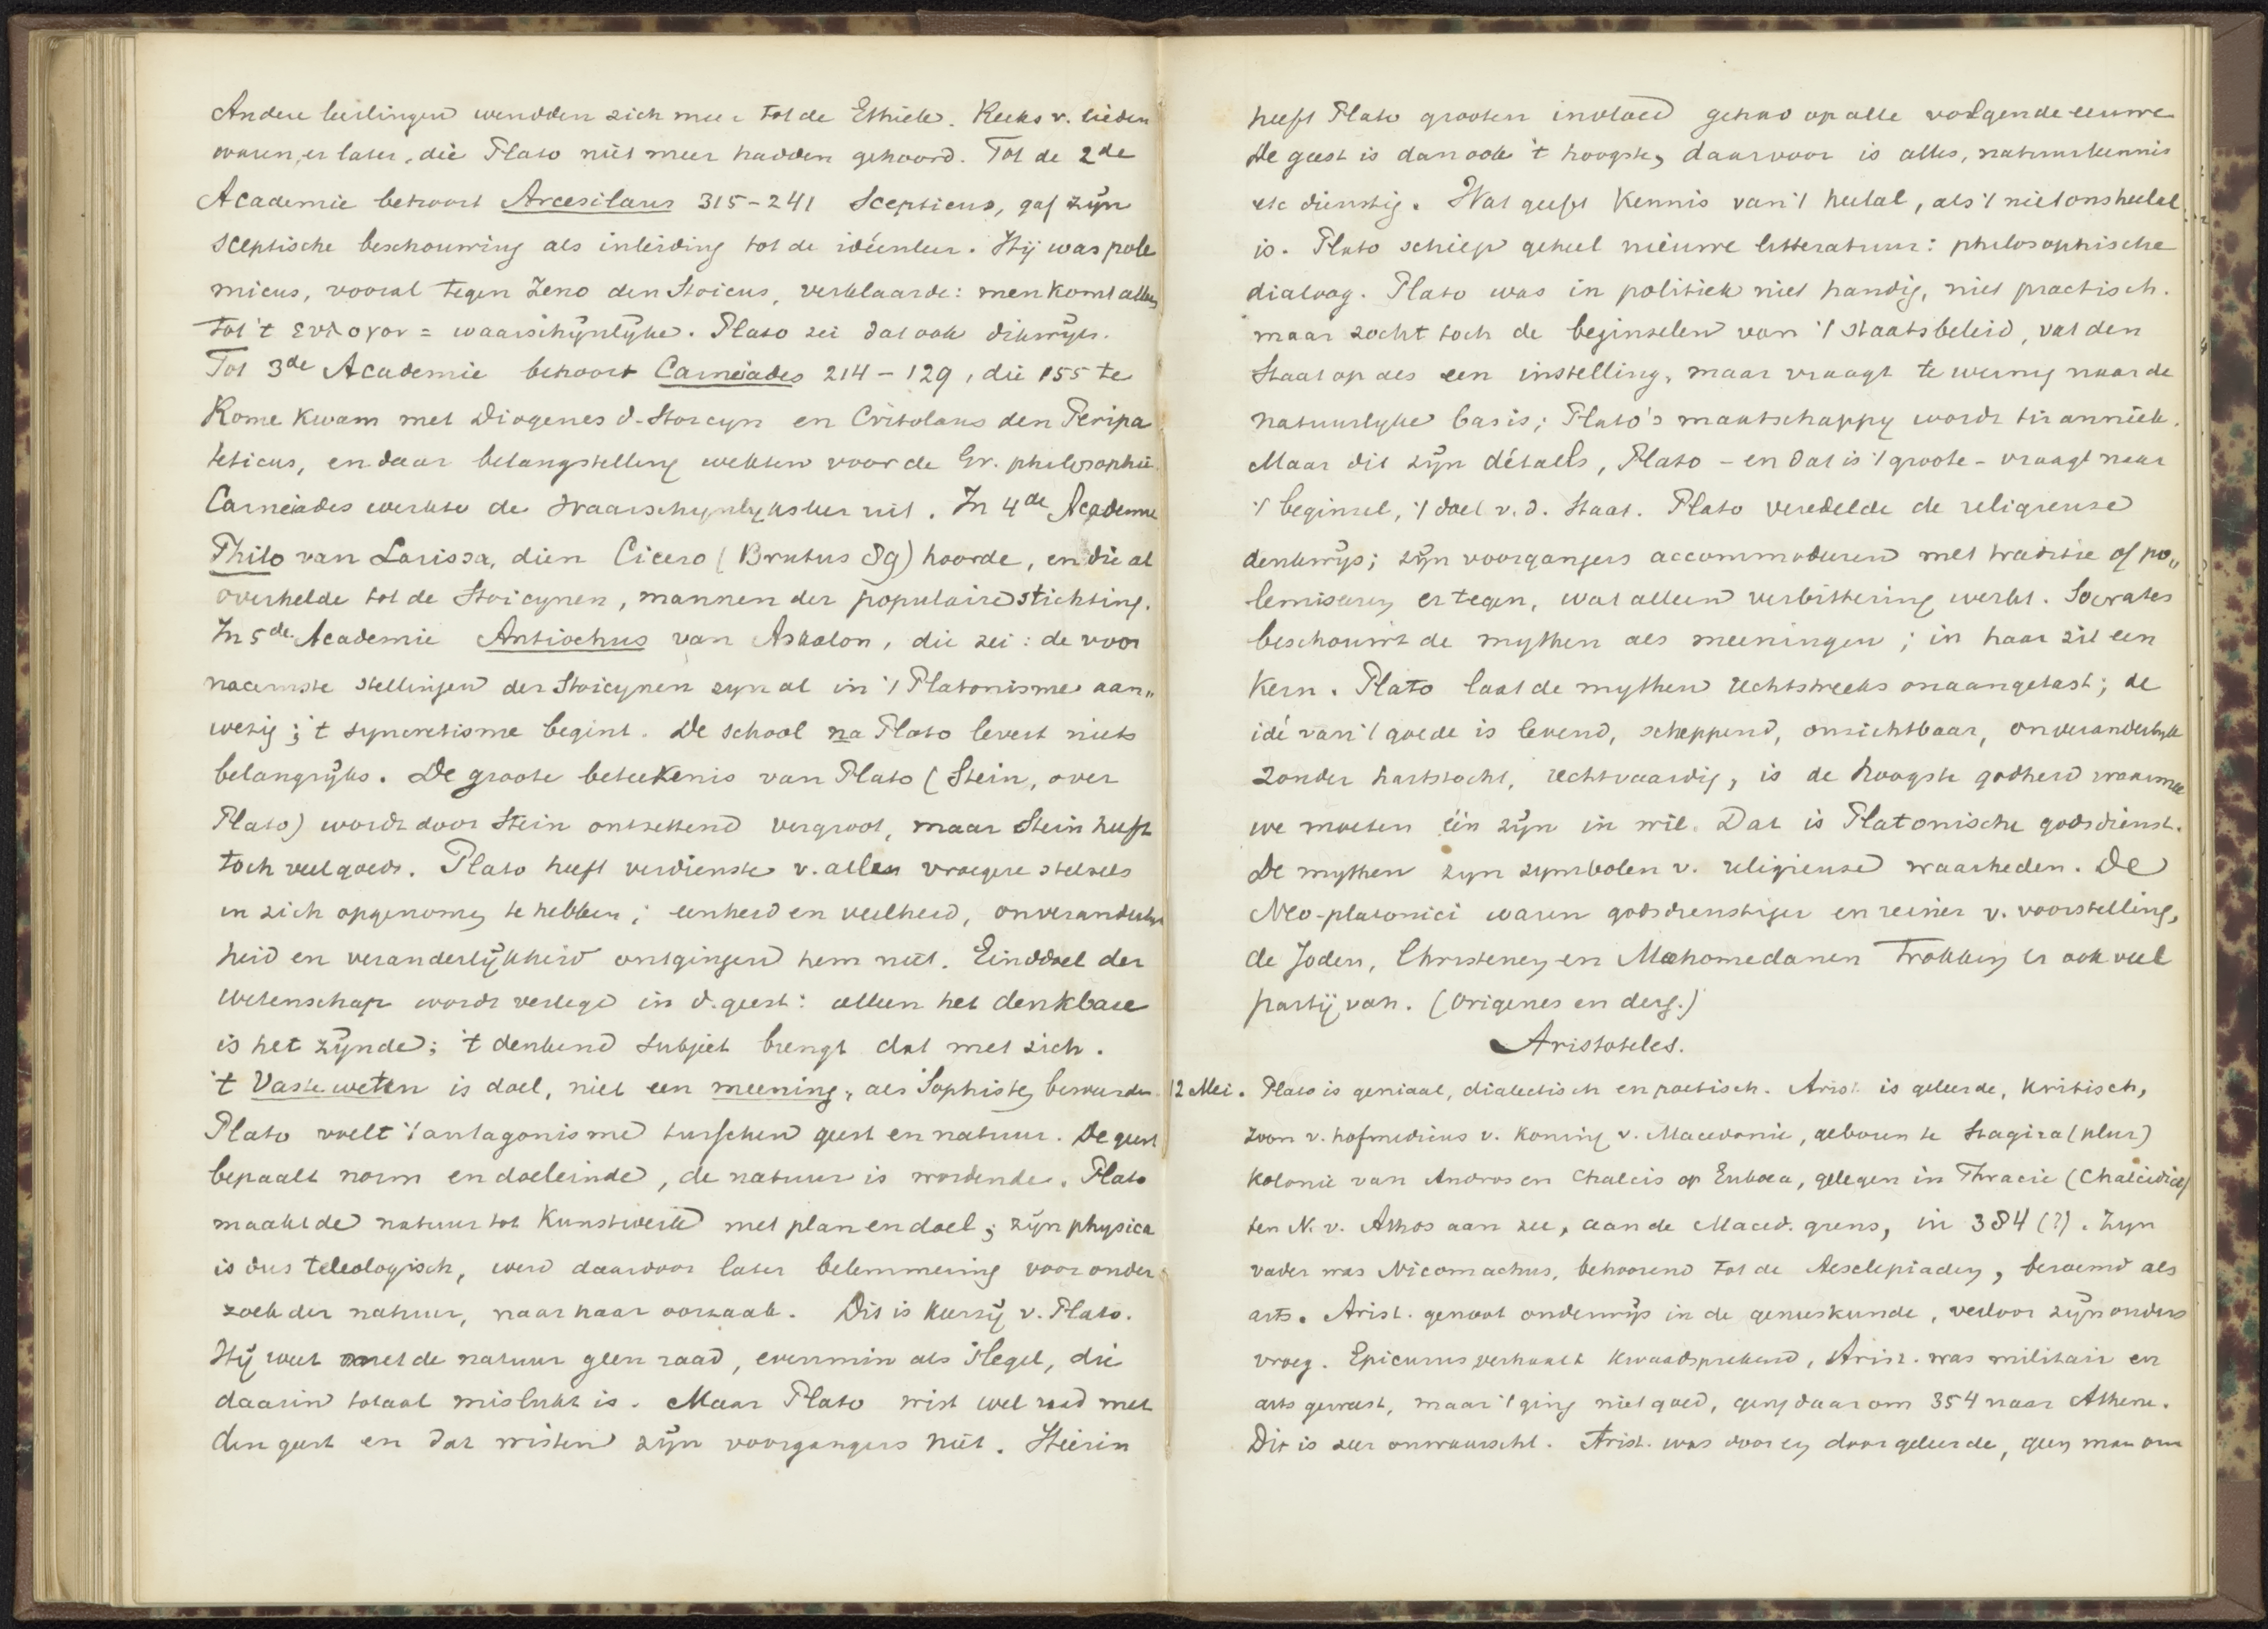 Andere leerlingen wendden zich meer tot de Ethiek. Reeks v. lieden
waren er later, die Plato niet meer hadden gehoord. Tot de 2de
Academie behoort Arcesilaus 315-241 Scepticus, gaf zijn
sceptische beschouwing als inleiding tot de ideënleer. Hij was pole
micus, vooral tegen Zeno den Stoicus, verklaarde: men komt alleen
tot 't ευλογον = waarschijnlijke. Plato zei dat ook dikwijls.
Tot 3de Academie behoort Carneades 214-129, die 155 te
Rome kwam met Diogenes d. Stoicyn en Critolaus den Peripa
teticus, en daar belangstelling wekten voor de Gr. philosophie.
Carneades werkte de waarschynlyksleer uit. In 4de Academie
Philo van Larissa, dien Cicero (Brutus 89) hoorde, en die al
overhelde tot de Stoicynen, mannen der populaire stichting.
In 5de Academie Antiochus van Askalon, die zei: de voor
naamste stellingen der Stoicynen zyn al in 't Platonisme aan"
wezig; 't syncretisme begint. De school na Plato levert niets
belangrijks. De groote beteekenis van Plato (Stein, over
Plato) wordt door Stein ontzettend vergroot, maar Stein heeft
toch veel goeds. Plato heeft verdienste v. alles vroegere stelsels
in zich opgenomen te hebben; eenheid en veelheid, onveranderlijk
heid en veranderlijkheid ontgingen hem niet. Einddoel der
wetenschap wordt verlegd in d. geest: alleen het denkbare
is het zijnde; 't denkend subject brengt dat met zich.
't Vaste weten is doel, niet een meening, als Sophisten beweerden.
Plato voelt 't antagonisme tusschen geest en natuur. De geest
bepaalt norm en doeleinde, de natuur is wordende. Plato
maakt de natuur tot kunstwerk met plan en doel; zijn physica
is dus teleologisch, werd daardoor later belemmering voor onder
zoek der natuur, naar haar oorzaak. Dit is keerzij v. Plato.
Hij weet met de natuur geen raad, evenmin als Hegel, die
daarin totaal mislukt is. Maar Plato wist wel raad met
den geest en dat wisten zijn voorgangers niet. Hierin
heeft Plato grooten invloed gehad op alle volgende eeuwe
De geest is dan ook 't hoogste, daarvoor is alles, natuurkennis
etc dienstig. Wat geeft kennis van 't heelal, als 't niet ons heelal
is. Plato schiep geheel nieuwe litteratuur: philosophische
dialoog. Plato was in politiek niet handig, niet practisch.
maar zocht toch de beginselen van 't staatsbeleid, vat den
Staat op als een instelling, maar vraagt te weinig naar de
natuurlyke basis; Plato's maatschappy wordt tiranniek.
Maar dit zijn détails, Plato - en dat is 't groote - vraagt naar
't beginsel, 't doel v. d. Staat. Plato veredelde de religieuse
denkwijs; zijn voorgangers accommoderen met traditie of po"
lemiseeren er tegen, wat alleen verbittering werkt. Socrates
beschouwt de mythen als meeningen; in haar zit een
kern. Plato laat de mythen rechtstreeks onaangetast; de
idé van 't goede is levend, scheppend, onzichtbaar, onveranderlyk
zonder hartstocht, rechtvaardig, is de hoogste godheid waarmee
we moeten één zijn in wil. Dat is Platonische godsdienst.
De mythen zyn symbolen v. religieuse waarheden. De
Neo-platonici waren godsdienstiger en reiner v. voorstelling,
de Joden, Christenen en Mahomedanen trokken er ook veel
partij van. (Origenes en derg.)
Aristoteles.
12 Mei. Plato is geniaal, dialectisch en poetisch. Arist. is geleerde, kritisch,
zoon v. hofmedicus v. koning v. Macedonie, geboren te Stagira (plur)
kolonie van Andros en Chalcis op Euboea, gelegen in Thracie (Chalcidice)
ten N. v. Athos aan zee, aan de Maced. grens, in 384 (?). Zyn
vader was Nicomachus, behoorend tot de Aesclepiaden, beroemd als
arts. Arist. genoot onderwijs in de geneeskunde, verloor zijn ouders
vroeg. Epicurus verhaalt kwaadsprekend, Arist. was militair en
arts geweest, maar 't ging niet goed, ging daarom 354 naar Athene.
Dit is zeer onwaarschl. Arist. was door en door geleerde, geen man om